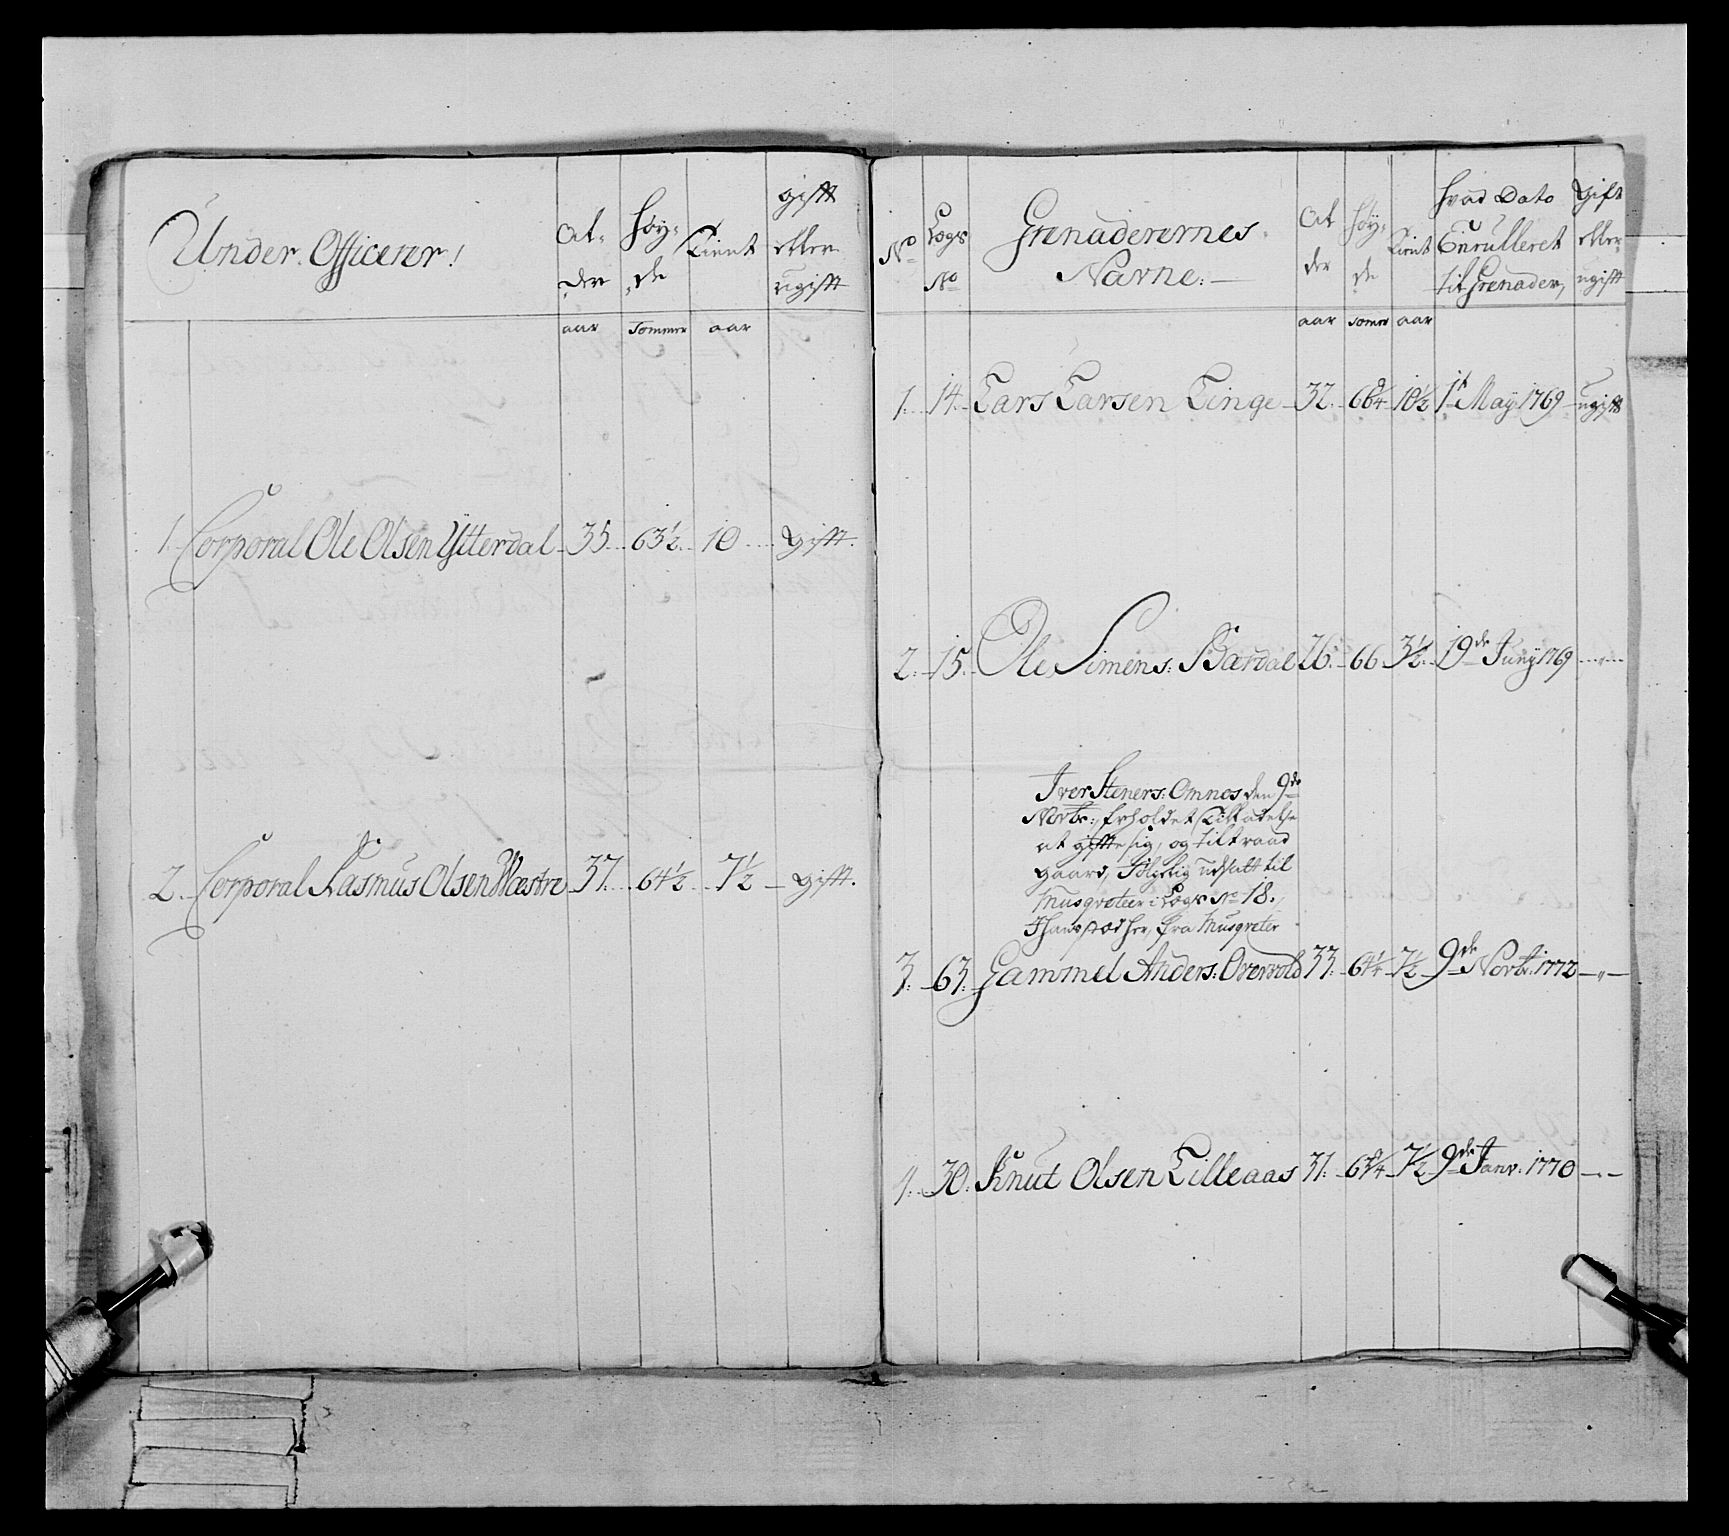 Under Officerer!
Al-
der
Høy-
de
Tient
gift
eller
ugift
aar
Tommer
aar
1. Corporal Ole Olsen Ytterdal 35. 63½ 10 Gift.
2. Corporal Rasmus Olsen Wæstre 37. 64½ 7½ Gift.
No
Lægs
No
Grenaderernes
Navne:
Al
der
Høy-
de
Tient
Hvad Dato
Enrulleret
til Grenader,
Gift
eller
ugift
aar
Tomer
aar
1. 14. Lars Larsen Linge 32. 10½ 1t May 1769 ugift
2. 15. Ole Simens: Bærdal 26. 66 3½ 19de Juny 1769 "
Iver Steners: Omnos den 9de
Novbr: erholdet Tilladelse
at gifte sig, og tiltraad
gaard, Følgelig udsatt til
Musqveteer i Lægs No 18.
Ihans sted her, fra Musqveter
3. 63. Gammel Anders: Overvold 33. 64¼ 7½ 9de Novbr. 1772 "
4. 30. Knut Olsen Lilleaas 31. 7½ 9de Janv. 1770 "